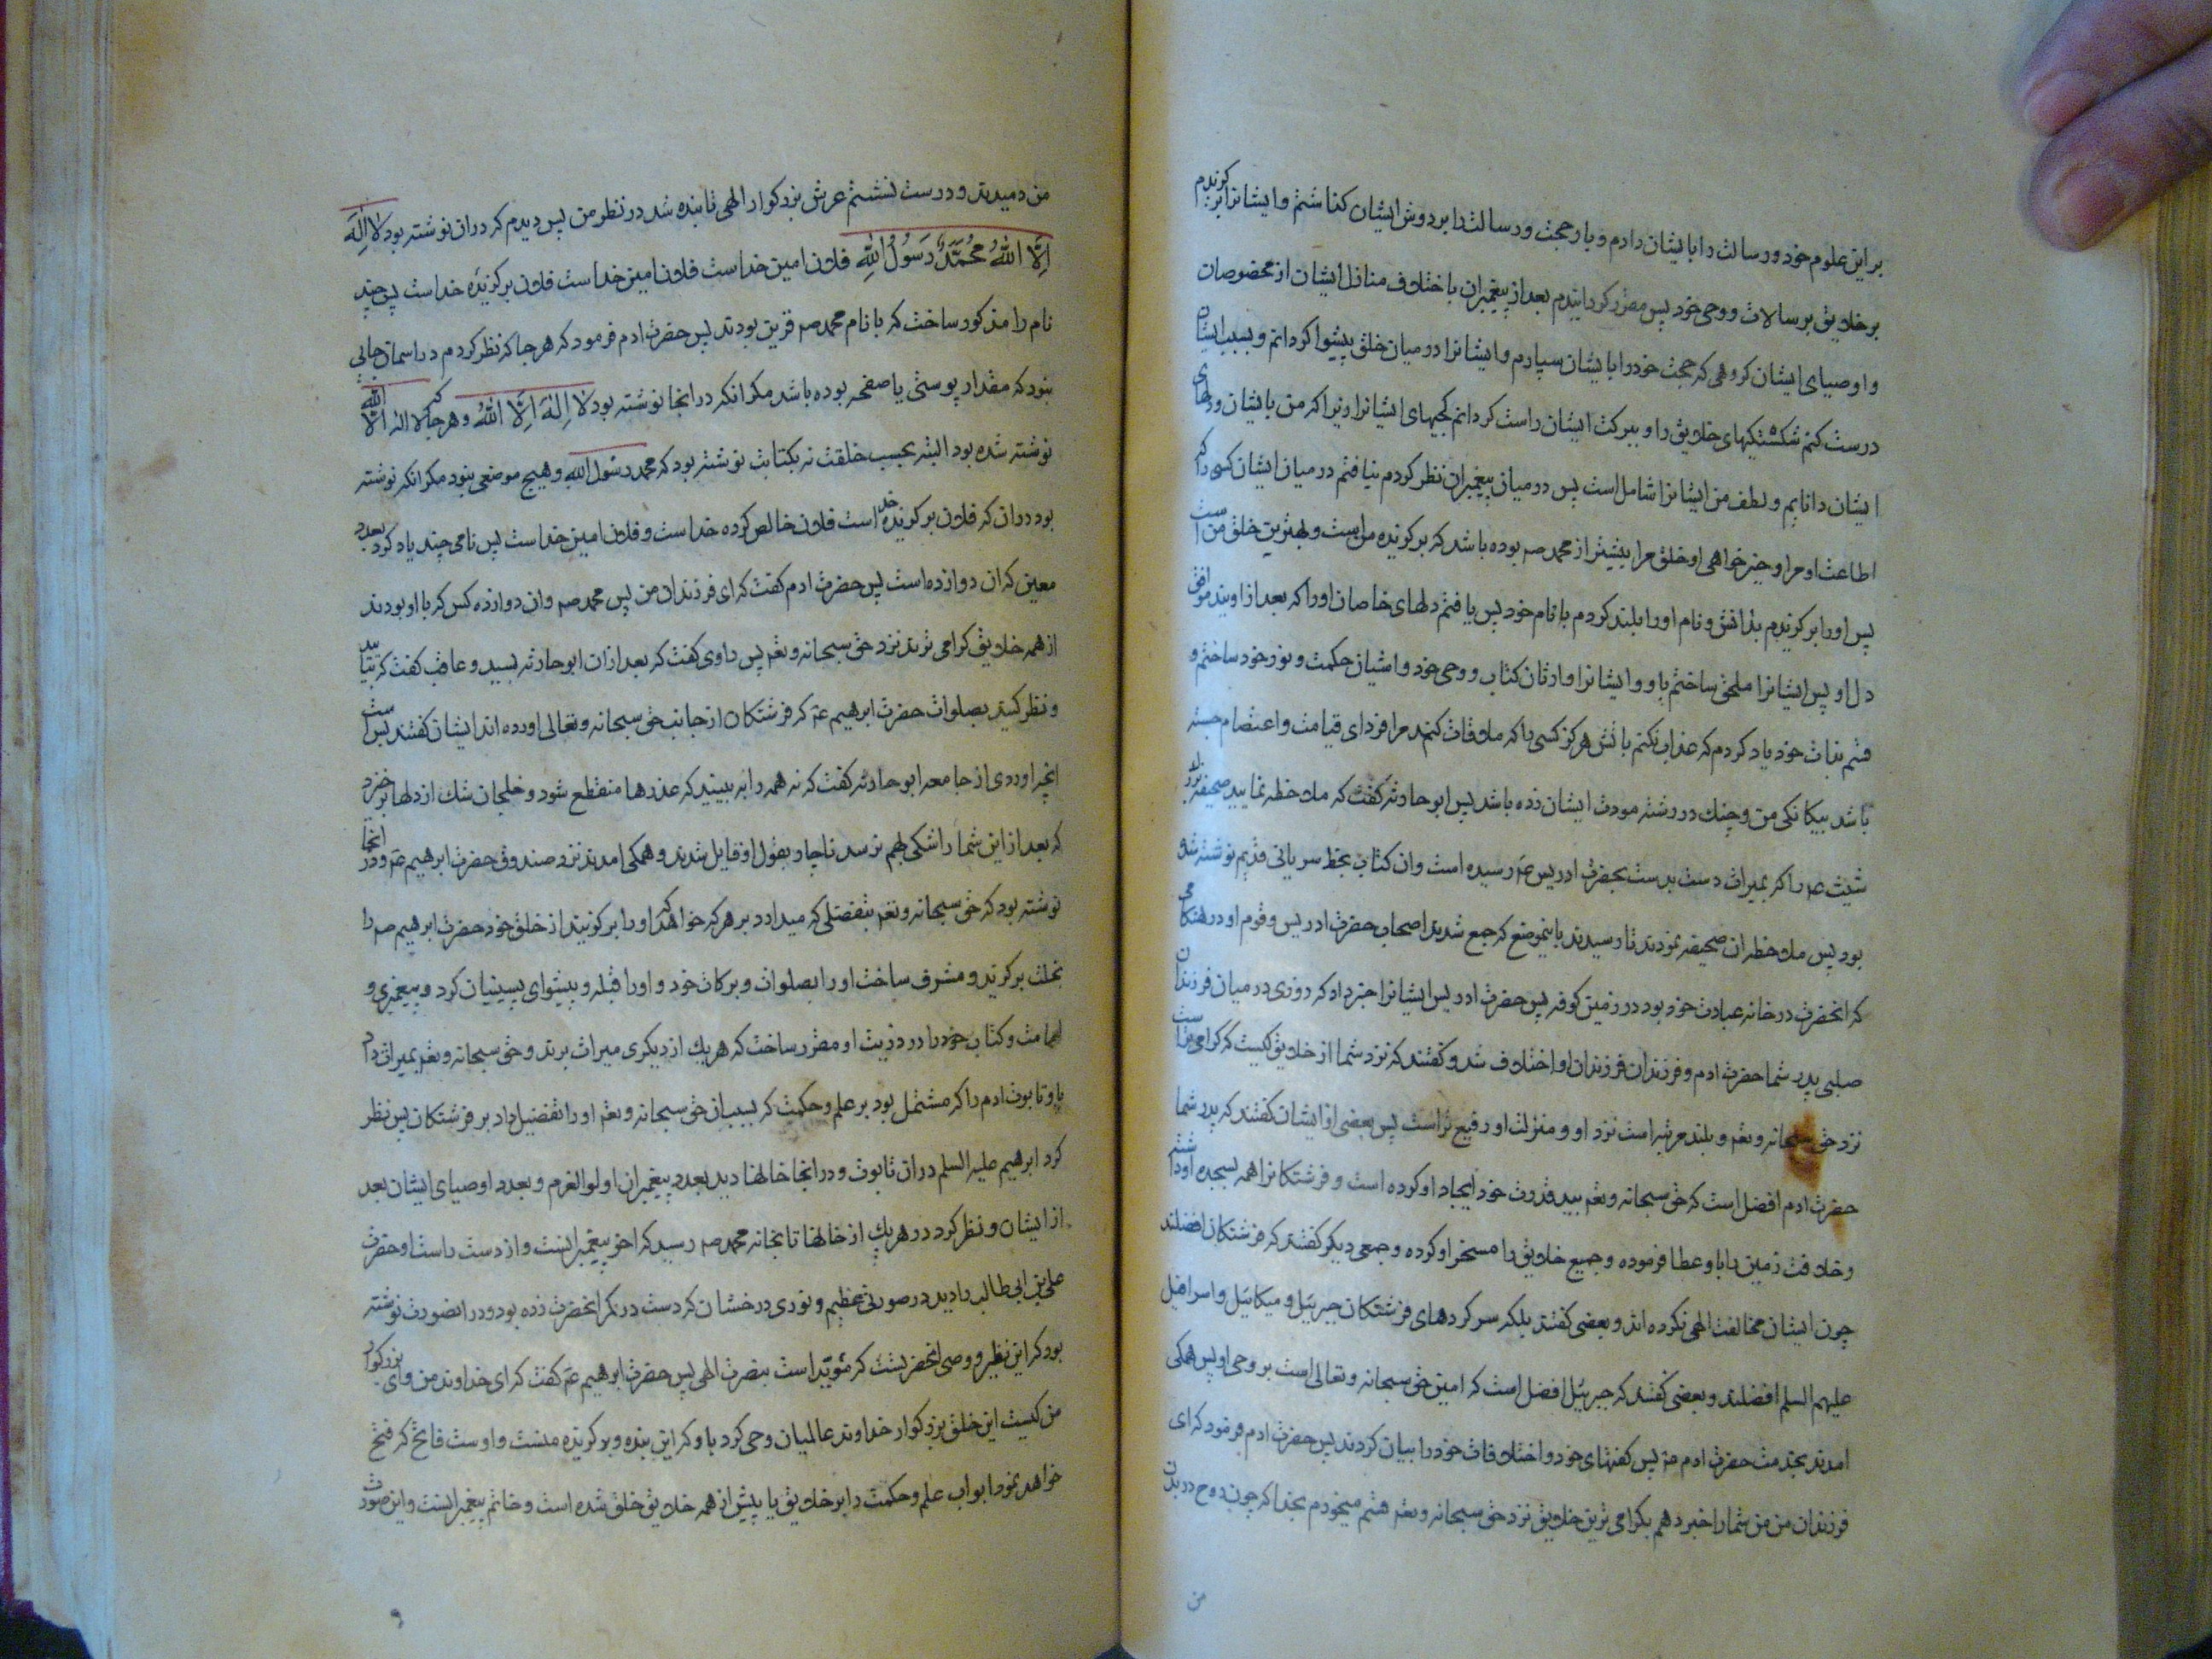 بر این علوم خود و رسالت را بایشان دادم و بار حجت و رسالت را بر دوش ایشان گذاشتم و ایشانرا برگزیدم
بر خلایق برسالات و وحی خود پس مقرر گردانیدم بعد از پیغمبران باختلاف منازل ایشان از مخصوصان
و اوصیای ایشان گروهی که حجت خود را بایشان سپارم و ایشانرا در میان خلق پیشوا گردانم و بسبب ایشان
درست کنم شکستگیهای خلایق را و ببرکت ایشان راست گردانم کجیهای ایشانرا زیرا که من بایشان و دلهای
ایشان دانایم و لطف من ایشانرا شامل است پس در میان پیغمبران نظر کردم نیافتم در میان ایشان کسی را که
اطاعت او مرا و خیر خواهی او خلق مرا بیشتر از محمد صم بوده باشد که برگزیده من است و بهترین خلق من است
پس او را برگزیدم بدانش و نام او را بلند کردم با نام خود پس یافتم دلهای خاصان او را که بعد از اویند موافق
دل او پس ایشانرا ملحق ساختم باو و ایشانرا وارثان کتاب و وحی خود و اشیان حکمت و نور خود ساختم و
قسم بذات خود یاد کردم که عذاب نکنم باتش هرگز کسی را که ملاقات کند مرا فردای قیامت و اعتصام جسته
باشد بیگانگی من و چنک در رشته مودت ایشان زده باشد پس ابو حارثه گفت که ملاحظه نمایید صحیفه بزرگ
شیث عم را که بمیراث دست بدست بحضرت ادریس عم رسیده است و ان کتاب بخط سریانی قدیم نوشته شده
بود پس ملاحظه ان صحیفه نمودند تا رسیدند باینموضع که جمع شدند اصحاب حضرت ادریس و قوم او در هنگامی
که انحضرت در خانه عبادت خود بود در زمین کوفه پس حضرت ادریس ایشانرا خبر داد که روزی در میان فرزندان
صلبی پدر شما حضرت ادم و فرزندان فرزندان او اختلاف شد و گفتند که نزد شما از خلایق کیست که گرامی تر است
نزد حق سبحانه و تعم و بلند مرتبه است نزد او و منزلت او رفیع تر است پس بعضی از ایشان گفتند که پدر شما
حضرت ادم افضل است که حق سبحانه و تعم بید قدرت خود ایجاد او کرده است و فرشتگانرا همه بسجده او داشته
و خلافت زمین را باو عطا فرموده و جمیع خلایق را مسخر او کرده و جمعی دیگر گفتند که فرشتگان افضلند
چون ایشان مخالفت الهی نکرده اند و بعضی گفتند بلکه سر کردهای فرشتگان جبرئیل و میکائیل و اسرافیل
علیهم السلم افضلند و بعضی گفتند که جبرئیل افضل است که امین حق سبحانه و تعالی است بر وحی او پس همگی
امدند بخدمت حضرت ادم عم پس گفتهای خود و اختلافات خود را بیان کردند پس حضرت ادم فرمود که ای
فرزندان من من شما را خبر دهم بگرامی ترین خلایق نزد حق سبحانه و تعم قسم میخورم بخدا که چون روح در بدن
من
من دمیدند و درست نشستم عرش بزرگوار الهی تابنده شد در نظر من پس دیدم که در ان نوشته بود لا اِلٰهَ
اِلَّا اللهُ مُحَمَّدٌ رَسُولُ اللهِ فلان امین خداست فلان امین خداست فلان برگزیده خداست پس چند
نام را مذکور ساخت که با نام محمد صم قرین بودند پس حضرت ادم فرمود که هر جا که نظر کردم در اسمان جایی
نبود که مقدار پوستی یا صفحه بوده باشد مگر انکه در انجا نوشته بود لا اِلٰهَ اِلَّا اللهُ و هر جا که لا اله الا الله
نوشته شده بود البته بحسب خلقت نه بکتابت نوشته بود که محمد رسول الله و هیچ موضعی نبود مگر انکه نوشته
بود دران که فلان برگزیده خداست فلان خالص کرده خداست و فلان امین خداست پس نامی چند یاد کرد بعدد
معین که ان دوازده است پس حضرت ادم گفت که ای فرزندان من پس محمد صم و ان دوازده کس که با او بودند
از همه خلایق گرامی ترند نزد حق سبحانه و تعم پس راوی گفت که بعد از ان ابو حارثه بسید و عاقب گفت که بیایید
و نظر کنید بصلوات حضرت ابرهیم عم که فرشتگان از جانب حق سبحانه و تعالی اورده اند ایشان گفتند بس است
انچه اوردی از جامعه ابو حارثه گفت که نه همه را به بینید که عذرها منقطع شود و خلجان شک از دلها بر خیزد
که بعد از این شما را شکی بهم نرسد ناچار بقول او قایل شدند و همگی امدند نزد صندوق حضرت ابرهیم عم و در انجا
نوشته بود که حق سبحانه و تعم بتفضلی که میدارد بر هر که خواهد که او را برگزیند از خلق خود حضرت ابرهیم صم را
بخلت برگزید و مشرف ساخت او را بصلوات و برکات خود و او را قبله و پیشوای پسینیان کرد و پیغمبری و
امامت و کتاب خود را در ذریت او مقرر ساخت که هر یک از دیگری میراث برند و حق سبحانه و تعم بمیراث داد
باو تابوت ادم را که مشتمل بود بر علم و حکمت که بسبب ان حق سبحانه و تعم او را تفضیل داد بر فرشتگان پس نظر
کرد ابرهیم علیه السلم در ان تابوت و در انجا خانها دید بعدد پیغمبران اولوالعزم و بعدد اوصیای ایشان بعد
از ایشان و نظر کرد در هر یک از خانها تا بخانه محمد صم رسید که اخر پیغمبرانست و از دست راست او حضرت
علی بن ابی طالب را دید در صورتی عظیم و نوری درخشان که دست در کمر انحضرت زده بود و در انصورت نوشته
بود که این نظیر و وصی انحضرتست که مؤیّد است بنصرت الهی پس حضرت ابرهیم عم گفت که ای خداوند من و ای بزرگوار
من کیست این خلق بزرگوار خداوند عالمیان وحی کرد باو که این بنده و برگزیده منست و اوست فاتح که فتح
خواهد نمود ابواب علم و حکمت را بر خلایق یا پیش از همه خلایق خلق شده است و خاتم پیغمبرانست و این صورت